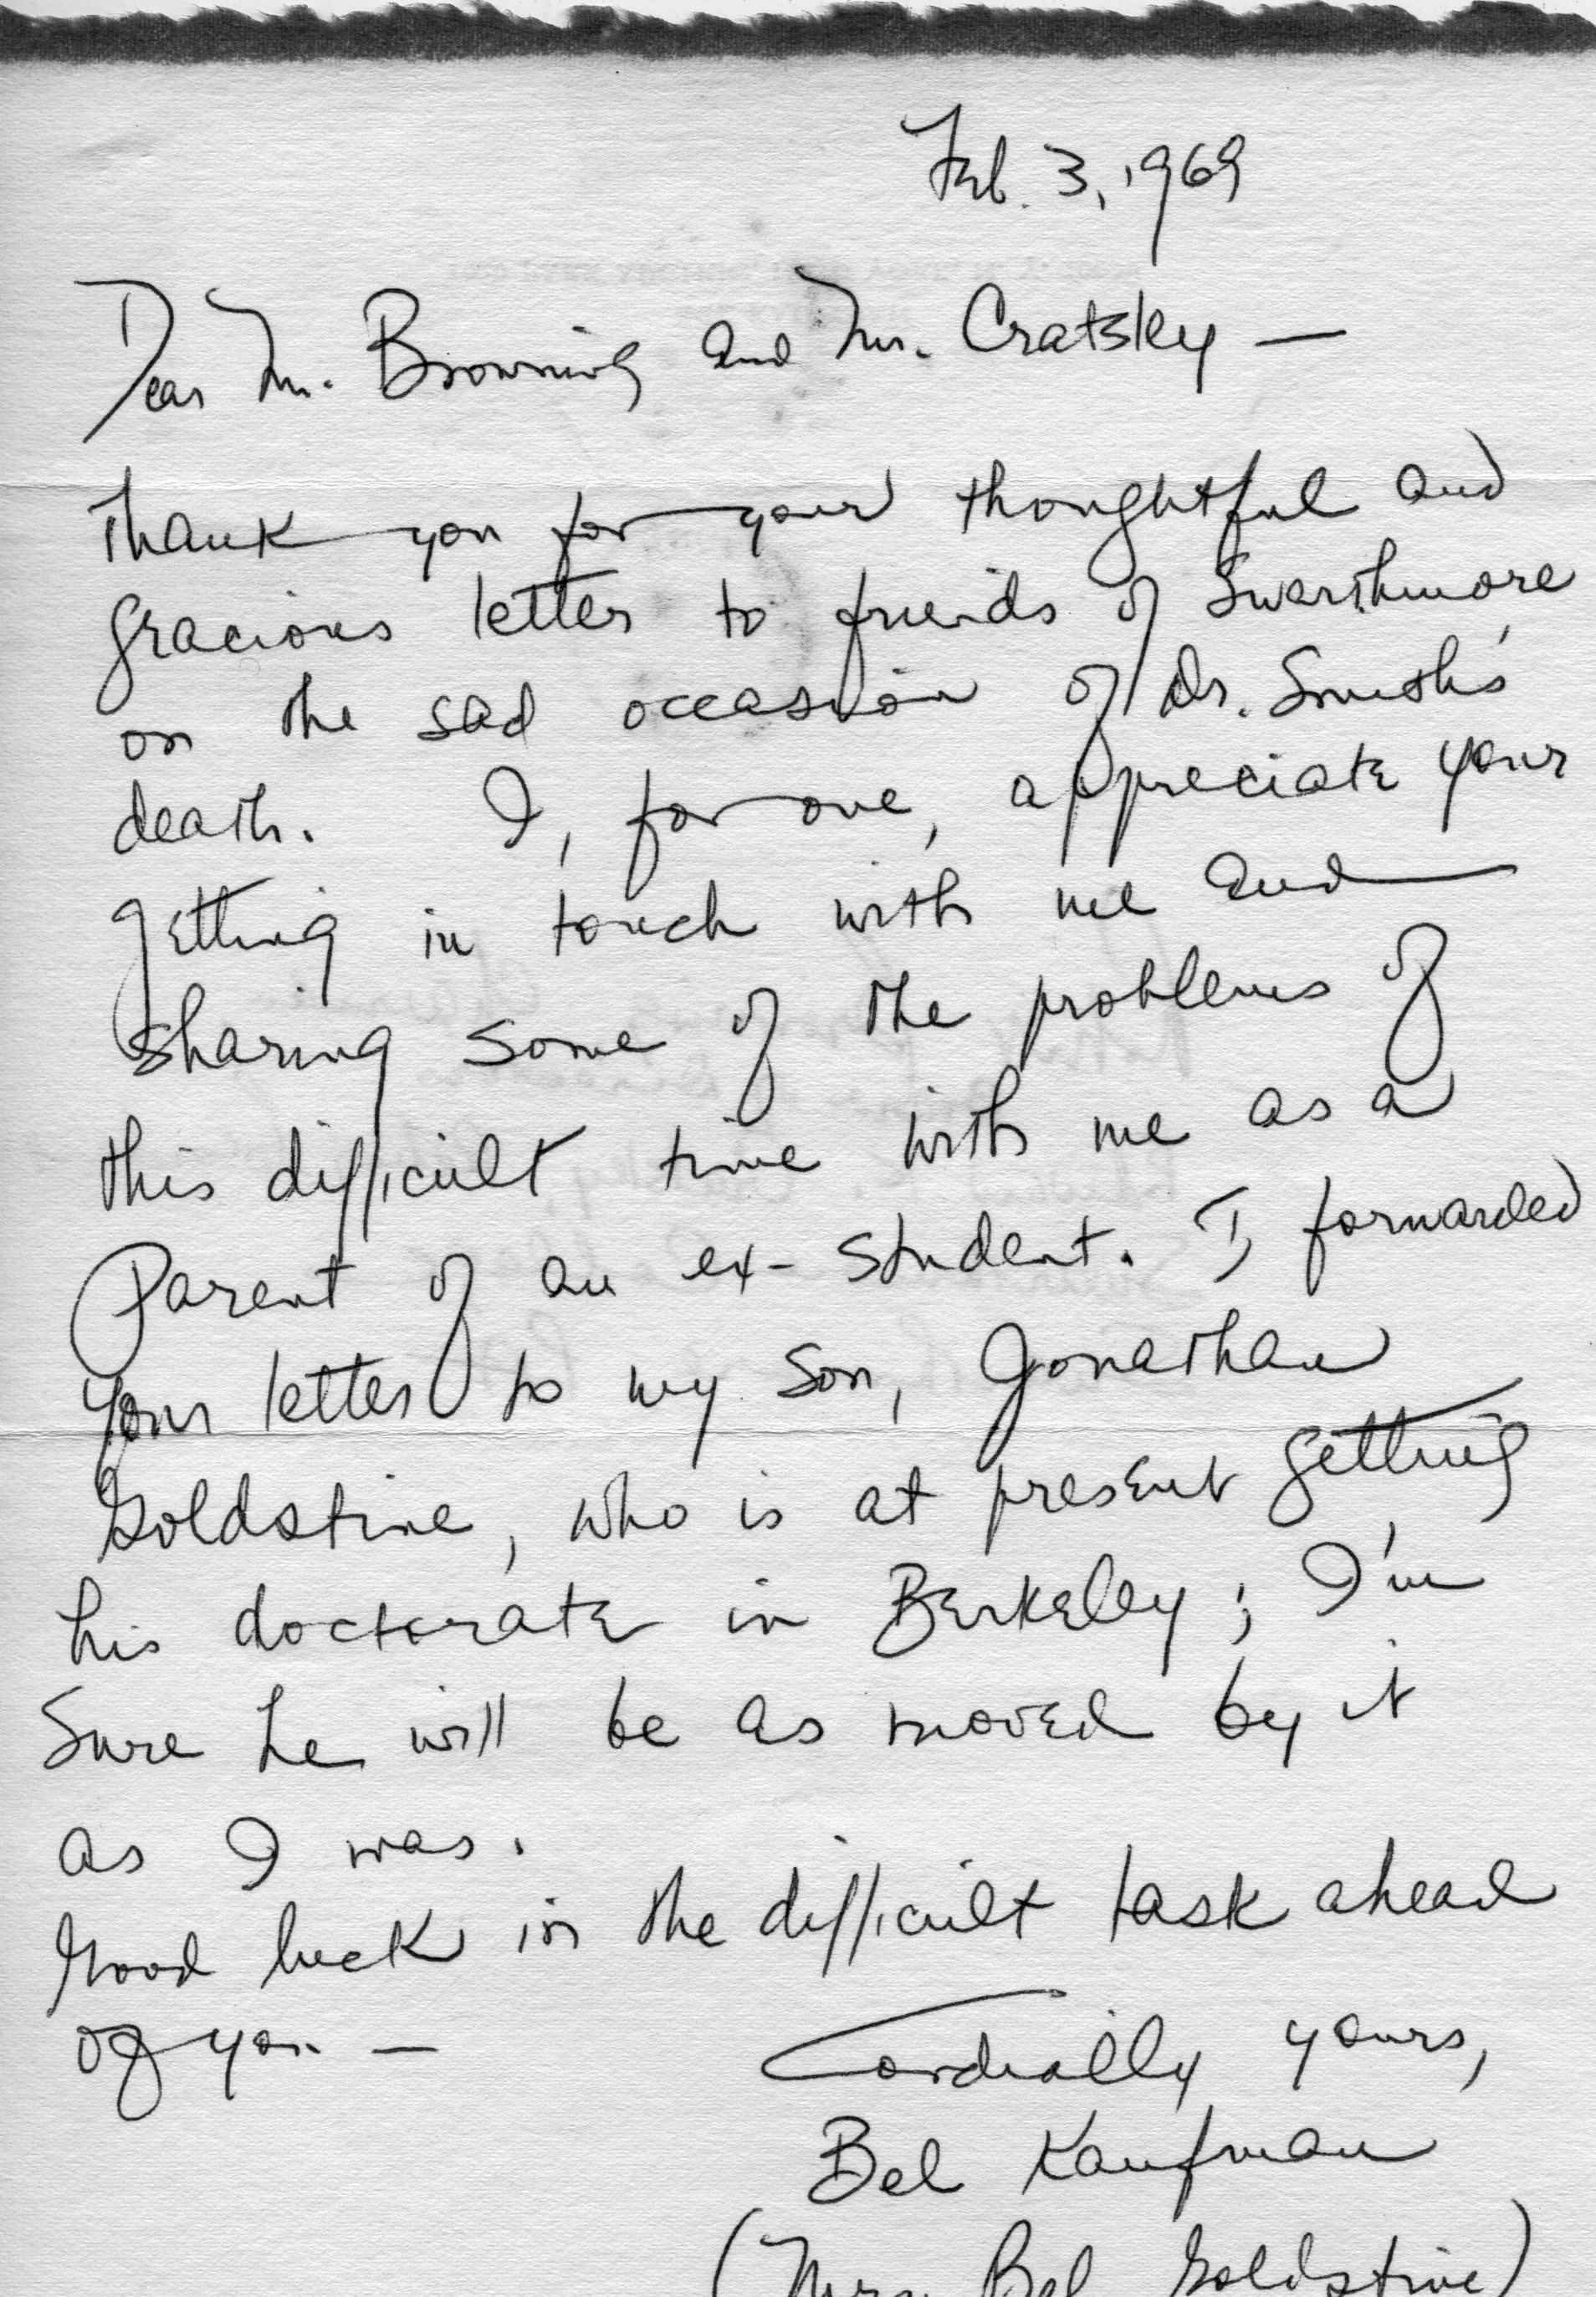 Feb. 3, 1969
Dear Mr. Browning and Mr. Cratsley —
Thank you for your thoughtful and
gracious letter to friends of Swarthmore,
on the sad occasion of Dr. Smith's
death. I, for one, appreciate your
getting in touch with me and
sharing some of the problems of
this difficult time with me as a
Parent of an ex-student. I forwarded
your letter to my son, Jonathan
Goldstine, who is at present getting
his doctorate in Berkeley; I'm
sure he will be as moved by it
as I was.
Good luck in the difficult task ahead
of you —
Cordially yours,
Bel Kaufman
(Mrs. Bel Goldstine)